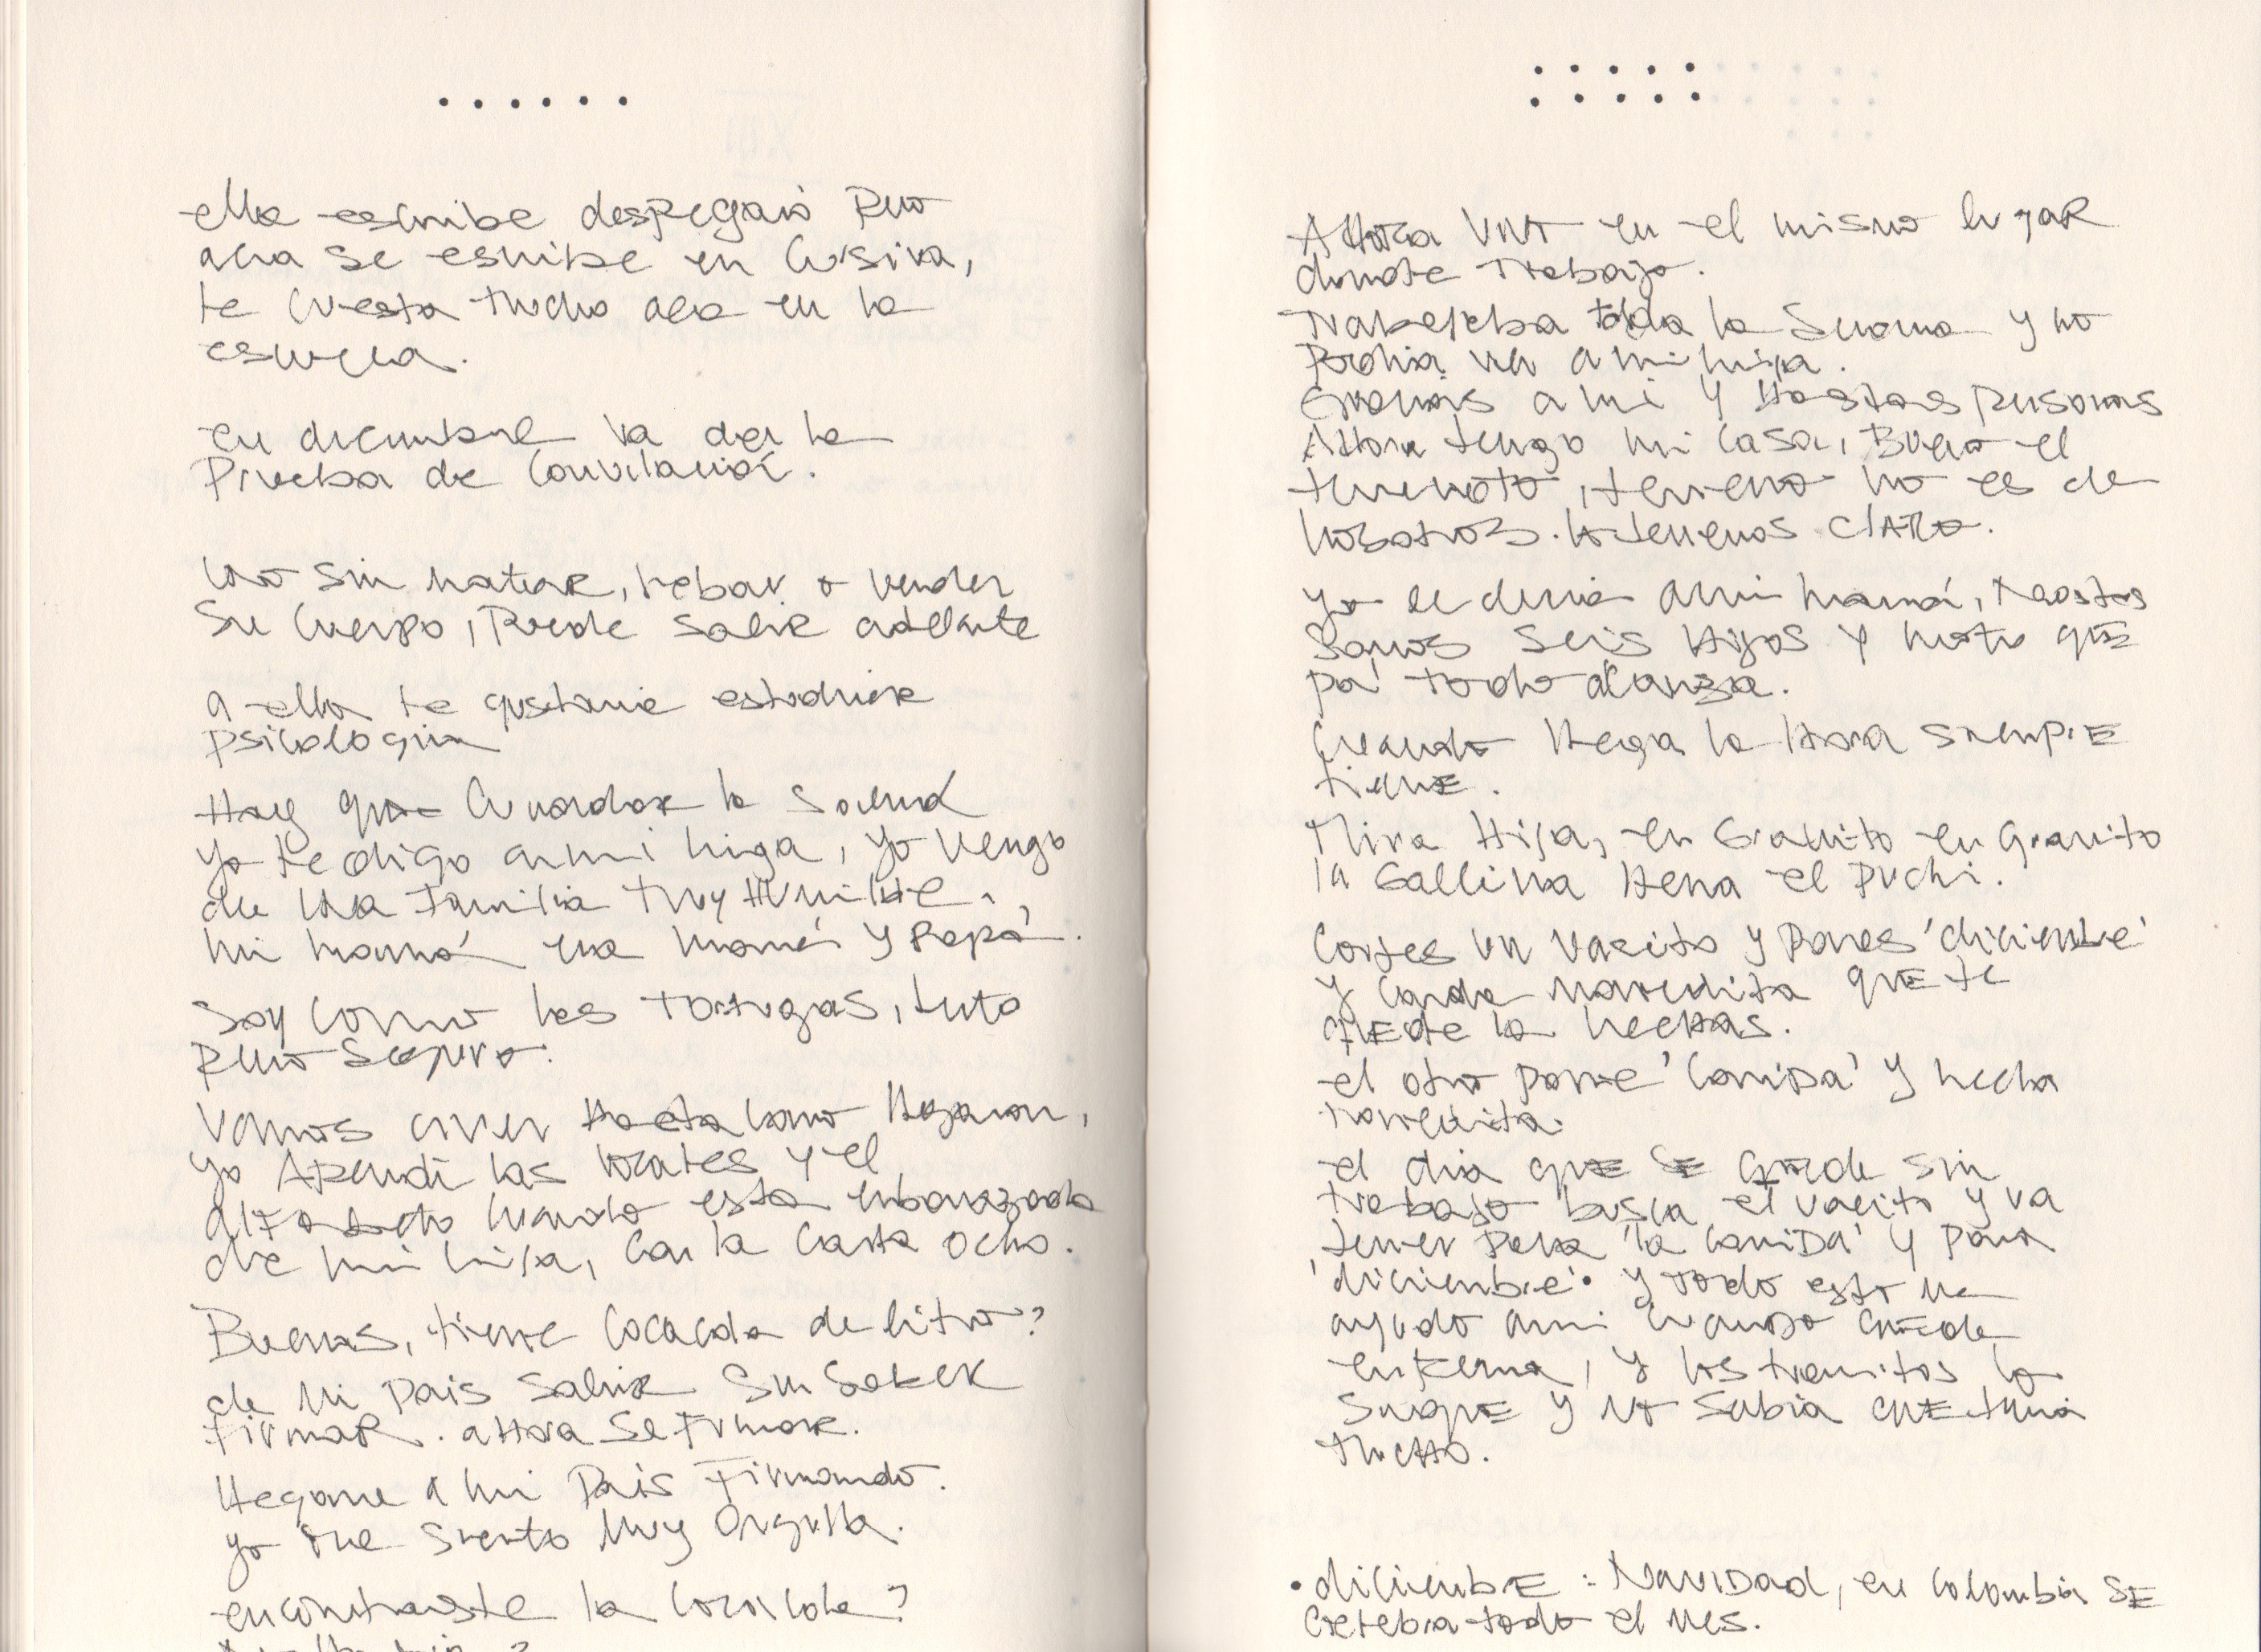 ella escribe despegaió pero
aca se escribe en cursiva,
le cuesta mucho aca en la
escuela.
en diciembre va der la
Prueba de
uno sin matar, robar o vender
su cuerpo, Puede salir adelante
a ella le gustaria estudiar
psicologia
Hay que cuardar la salud
yo le digo a mi higa, yo vengo
de una familia muy Humilde.
mi mamá era mamá y Papá.
Soy como las tortugas, lento
pero seguro.
Vamos a ver Hasta como llegaron,
yo Aprendi las vocales y el
cuando esta enbarazada
de mi hija, con la Carta ocho.
Buenas, tiene Cocacola de litro?
de mi Pais salir sin saber
firmar. aHora se firmar.
llegare a mi Pais Firmando.
yo me siento Muy Orgulla.
encontraste la cocacola?
AHora vivo en el mismo lugar
donde trabajo.
trabajaba toda la semana y no
Podia ver a mi hija.
Gracias a mi y Hastas personas
AHora tengo mi casa, Bueno el
terrenoto, terreno no es de
nosotros. lo tenemos claro.
yo le decia a mi mamá,
Somos seis Hijos y mato que
pa' todo alcanza.
Cuando llega la Hora siempre
tiene.
Mira Hija, en Granito en Granito
la Gallina llena el Puchi.
Cortes un vasito y Pones 'diciembre'
y cada monedita que te
quede la hechas.
el otro pone 'Comida' y hecha
monedita.
el dia que se quede sin
trabajo busca el vasito y va
tener Para 'la Comida' y Para
'diciembre'. y todo esto me
ayudo a mi cuando quede
enferma, y los tramitos lo
saque y no sabia que tenia
mucHo.
• diciembre : Navidad, en Colombia se
celebra todo el mes.